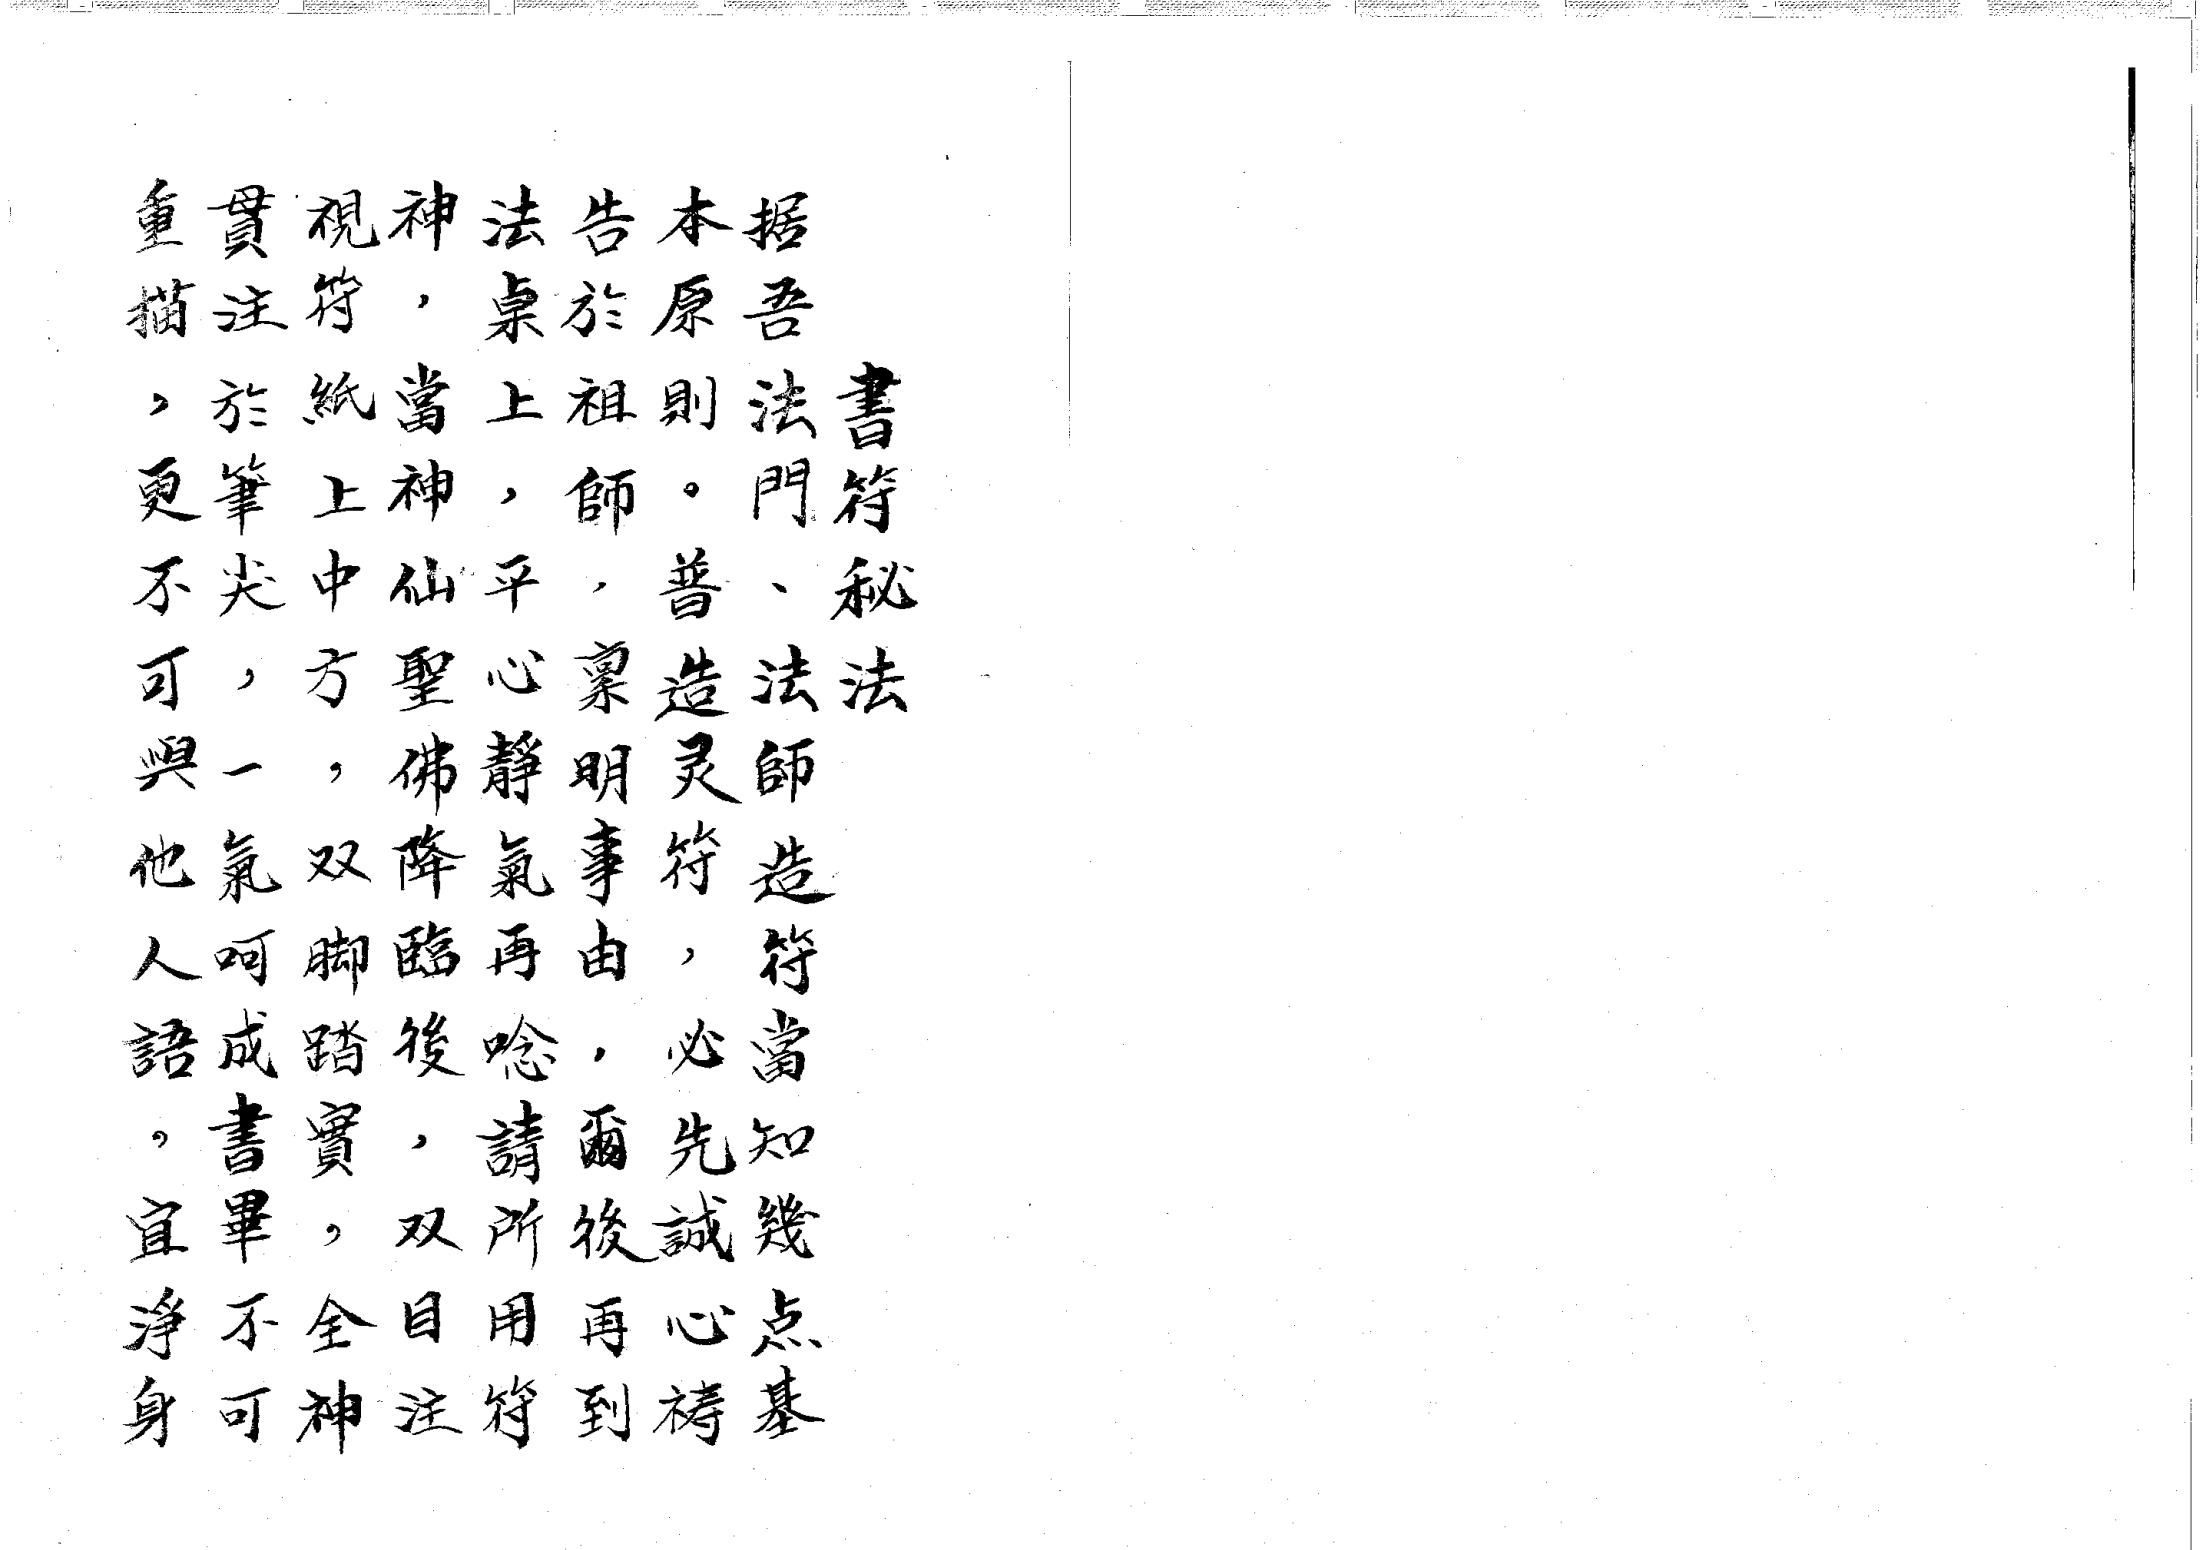 書符秘法
据吾法門、法師造符當知幾点基
本原則。普造灵符，必先誠心祷
告於祖師，稟明事由，爾後再到
法桌上，平心靜氣再唸請所用符
神，當神仙聖佛降臨後，双目注
視符紙上中方，双脚踏實，全神
貫注於筆尖，一氣呵成書畢不可
重描，更不可與他人語。宜淨身